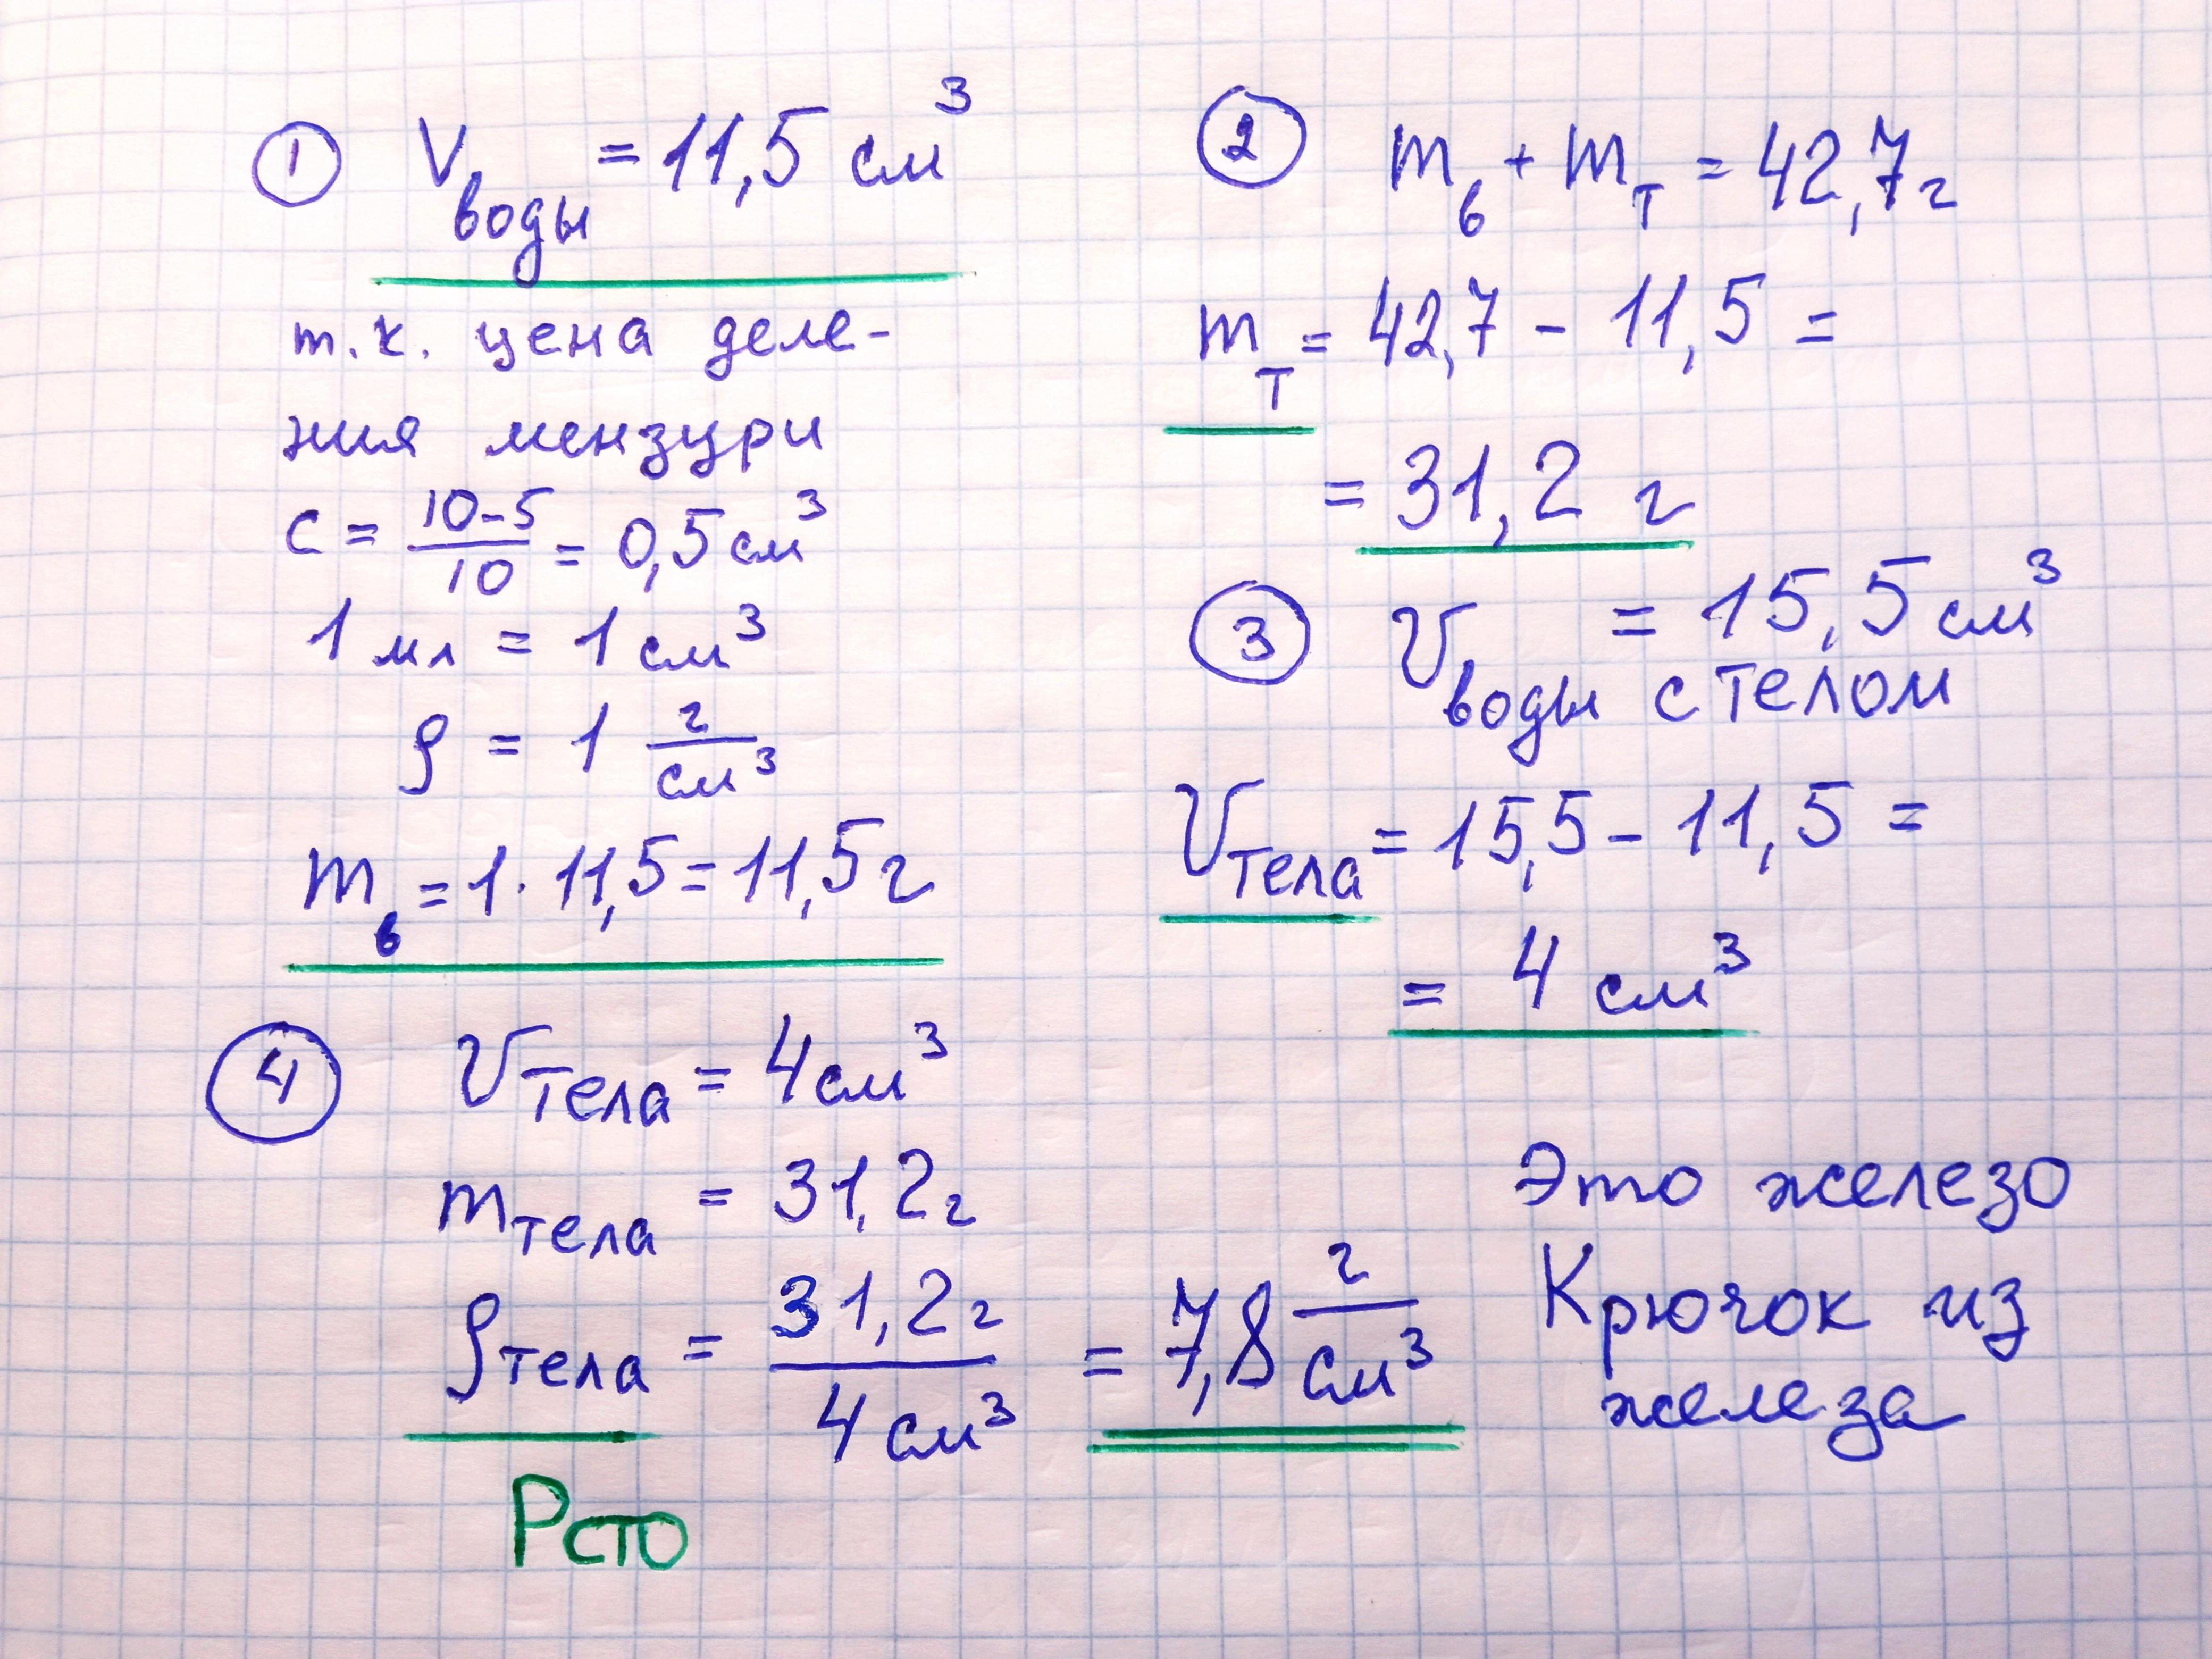 ① Vводы = 11,5 см³
т.к. цена деле-
ния мензури
c = (10-5)/10 = 0,5 см³
1 мл = 1 см³
ρ = 1 г/см³
mв = 1 · 11,5 = 11,5 г
② mв + mт = 42,7 г
mт = 42,7 - 11,5 =
= 31,2 г
③ Vводы с телом = 15,5 см³
Vтела = 15,5 - 11,5 =
= 4 см³
④ Vтела = 4 см³
mтела = 31,2 г
ρтела = 31,2 г/4 см³ = 7,8 г/см³
Это железо
Крючок из
железа
Рсто